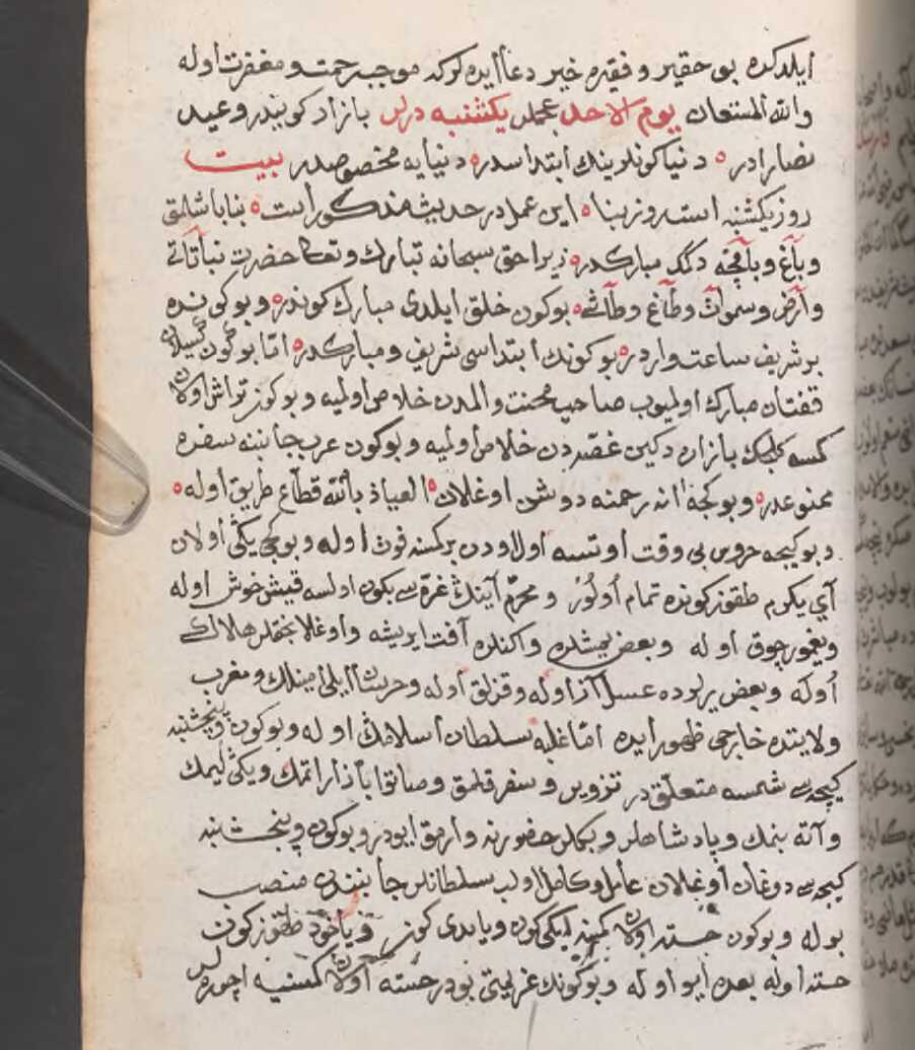 ايلدكده بو حقير و فقيره خير دعا ايده لر كه موجب رحمت و مغفرت اوله
والله المستعان يوم الاحد عجملر يكشنبه ديرلر بازار كونيدر و عيد
نصارادر دنيا كونلرينك ابتداسدر دنيايه مخصوصدر بيت
روز يكشنبه است روز بنا اين عمل در حديث مذكور است بنا باشلمق
و باغ و باغچه دكك مباركدر زيرا حق سبحانه تبارك و تعالى حضرت نباتاتى
و ارض و سموات و طاغ و طاشى بوكون خلق ايلدى مبارك كوندر و بو كونده
بر شريف ساعت واردر بو كونك ابتداسى شريف و مباركدر اما بو كون كسيلان
قفتان مبارك اوليوب صاحب محنت و المدن خلاص اوليه و بو كون تراش اولان
كمسه كلجك بازاره دكين غصه دن خلاص اوليه و بوكون عرب جانبنه سفره
ممنوعدر و بو كجه انه رحمنه دوشن اوغلان العياذ بالله قطاع طريق اوله
و بو كيجه خروس بى وقت اوتسه اولاودن بر كمسه فوت اوله و بو كجه يكى اولان
آى يكرم طقوز كونده تمام اولور و محرم آينك غره سى بكون اولسه قيش خوش اوله
و يغمور چوق اوله و بعض يمشده و اكنده آفت ايريشه و اوغلانجقلر هلاك
اوله و بعض يرلرده عسل آز اوله و قزلق اوله و حرب
ولايتنده خارجى ظهور ايده اما غلبه سلطان اسلامك اوله و بوكون و پنجشنبه
كيجه سى شمسه متعلق در تزوير و سفر قلمق و صاتو بازار اتمك و يكى ليمك
و آته بنمك و پادشاهلر و بكلر حضورنه وارمق ايودر و بوكون و پنجشنبه
كيجه سى دوغان اوغلان عامل و كامل اولب سلطانلر جانبندن منصب
بوله و بوكون خسته اولان كمسه ايكى كون و يا يدى كون و ياخود طقوز كون
خسته اوله بعده ايو اوله و بو كونك عزيمتى بودر خسته اولان كمسيه اچوره لر